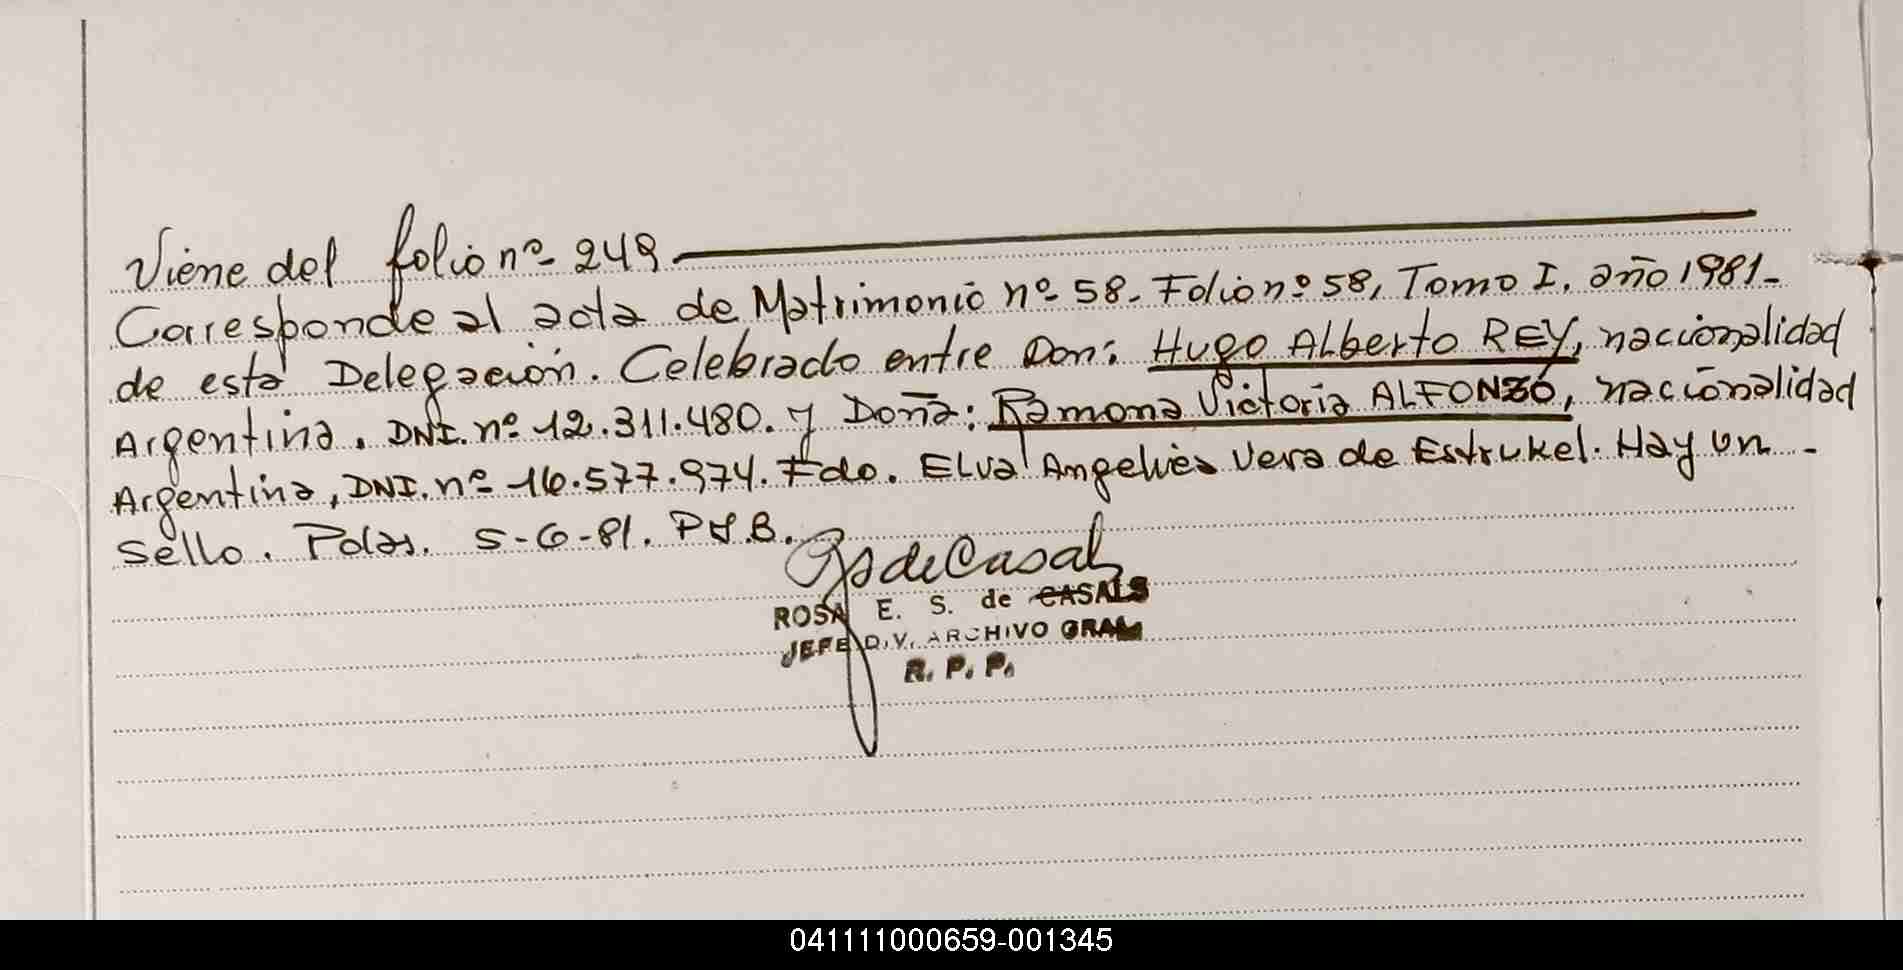 Viene del folio nº 249
Corresponde al acta de Matrimonio nº 58. Folio nº 58, Tomo I. año 1981-
de esta Delegación. Celebrado entre Don: Hugo Alberto REY, nacionalidad
Argentina. DNI. nº 12.311.480. y Doña: Ramona Victoria ALFONZO, nacionalidad
Argentina, DNI. nº 16.577.974. Fdo. Elva Angelica Vera de Estrukel. Hay un -
Sello. Pdas. 5-6-81.
ROSA E. S. de CASALS
JEFE DIV. ARCHIVO GRAL
R. P. P.
041111000659-001345